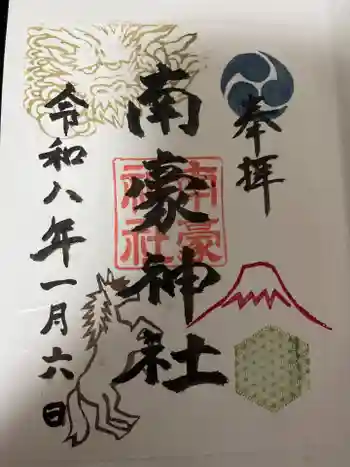 奉拝
南豪神社
南豪
神社
令和八年一月六日